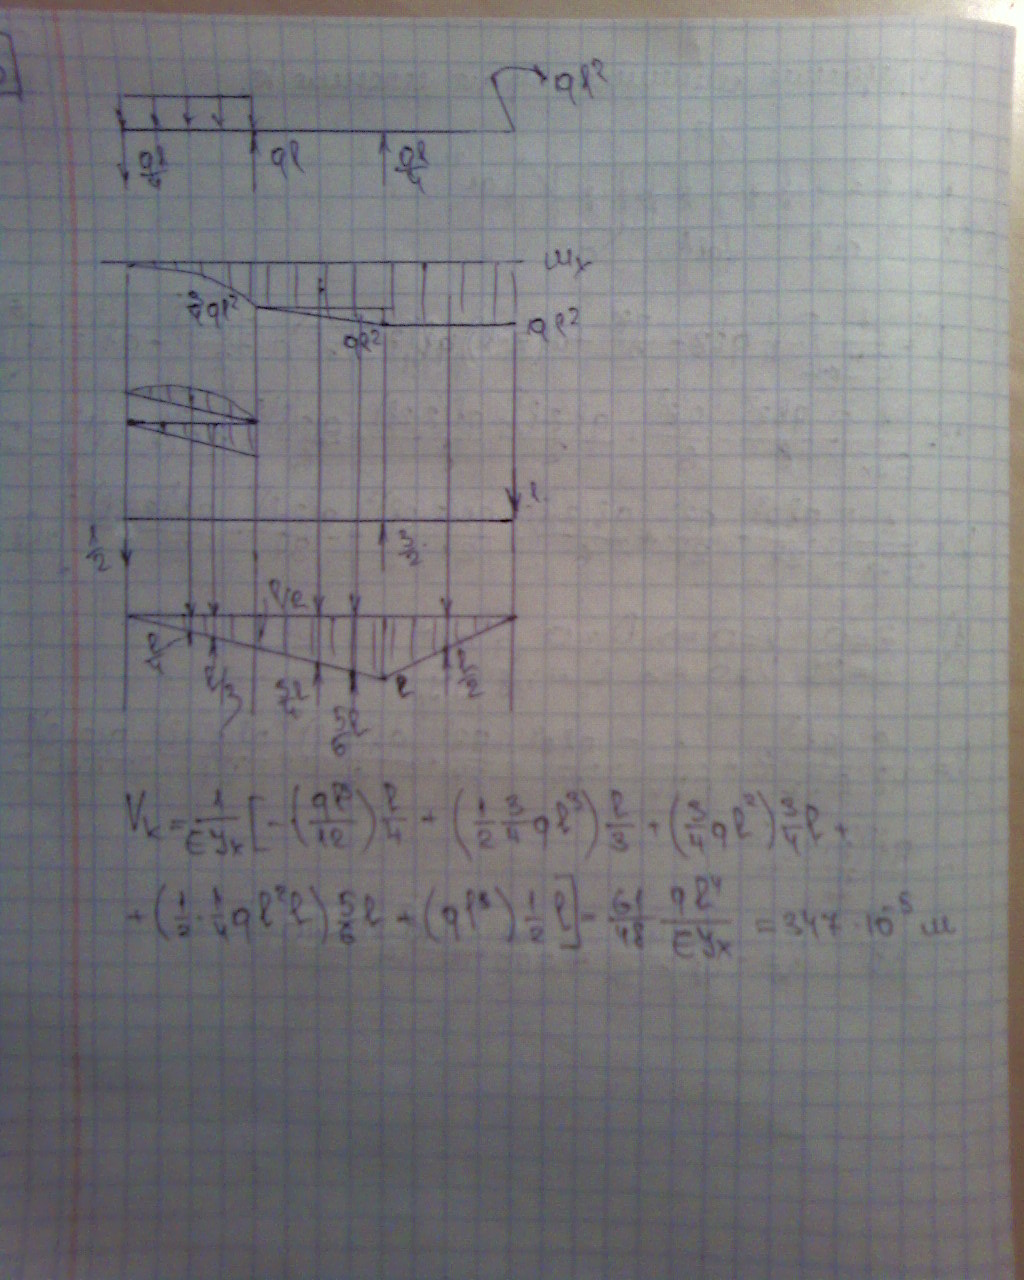 ql²
ql/4 ql ql/4
Mx
3/4 ql²
ql² ql²
1
1/2 3/2
l/2
l/4 l/3 3l/4 l l/2
5l/6
Vk = 1/EJx [ - (ql³/12) l/4 + (1/2 3/4 ql³) l/3 + (3/4 ql²) 3/4 l +
+ (1/2 · 1/4 ql² l) 5/6 l + (ql³) 1/2 l ] = 61/48 ql⁴/EJx = 347 · 10⁻⁵ м